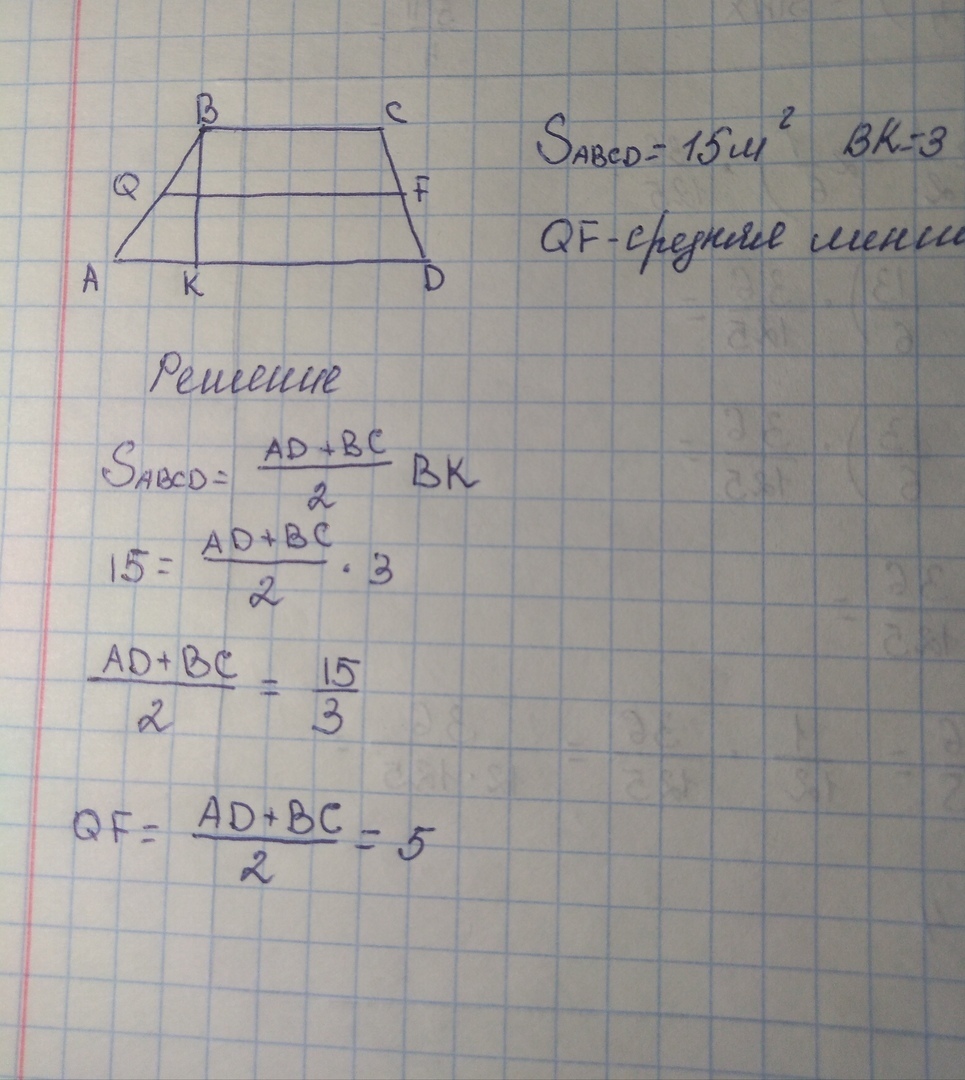 B C
Q F
A K D
S_ABCD = 15м² BK=3
QF-средняя линия
Решение
S_ABCD = (AD+BC)/2 BK
15 = (AD+BC)/2 · 3
(AD+BC)/2 = 15/3
QF = (AD+BC)/2 = 5